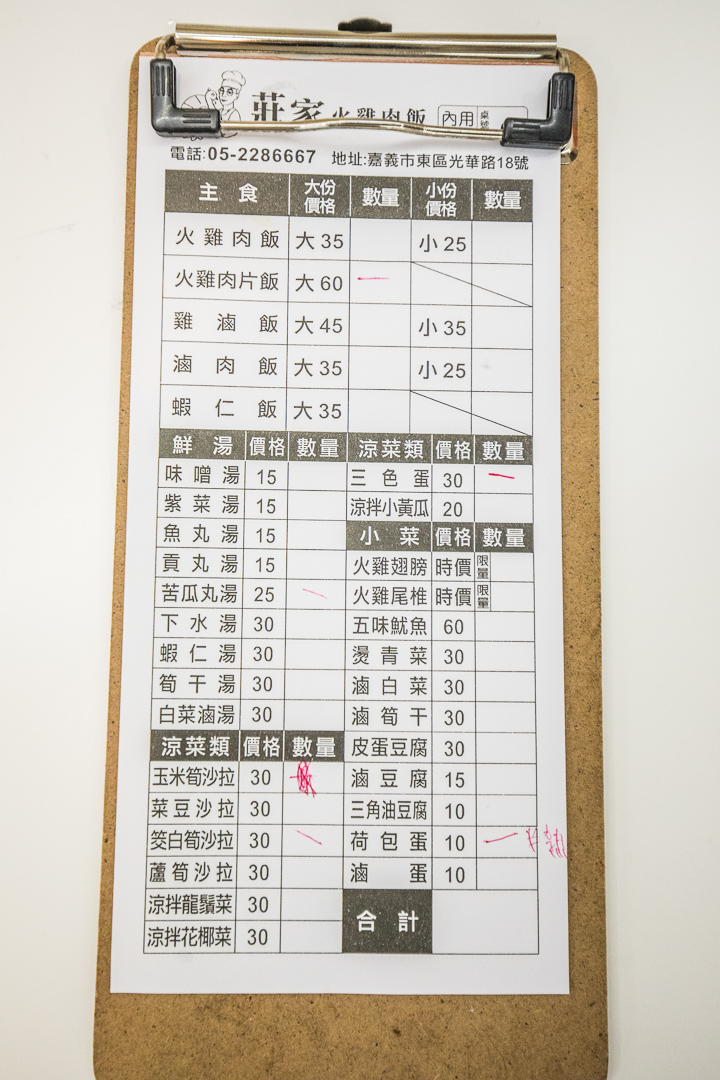 莊家火雞肉飯 內用 桌號
電話:05-2286667 地址:嘉義市東區光華路18號
主食 大份價格 數量 小份價格 數量
火雞肉飯 大35 小25
火雞肉片飯 大60 一
雞滷飯 大45 小35
滷肉飯 大35 小25
蝦仁飯 大35
鮮湯 價格 數量
味噌湯 15
紫菜湯 15
魚丸湯 15
貢丸湯 15
苦瓜丸湯 25 一
下水湯 30
蝦仁湯 30
筍干湯 30
白菜滷湯 30
涼菜類 價格 數量
玉米筍沙拉 30
菜豆沙拉 30
筊白筍沙拉 30 一
蘆筍沙拉 30
涼拌龍鬚菜 30
涼拌花椰菜 30
涼菜類 價格 數量
三色蛋 30 一
涼拌小黃瓜 20
小菜 價格 數量
火雞翅膀 時價 限量
火雞尾椎 時價 限量
五味魷魚 60
燙青菜 30
滷白菜 30
滷筍干 30
皮蛋豆腐 30
滷豆腐 15
三角油豆腐 10
荷包蛋 10 一
滷蛋 10
合計